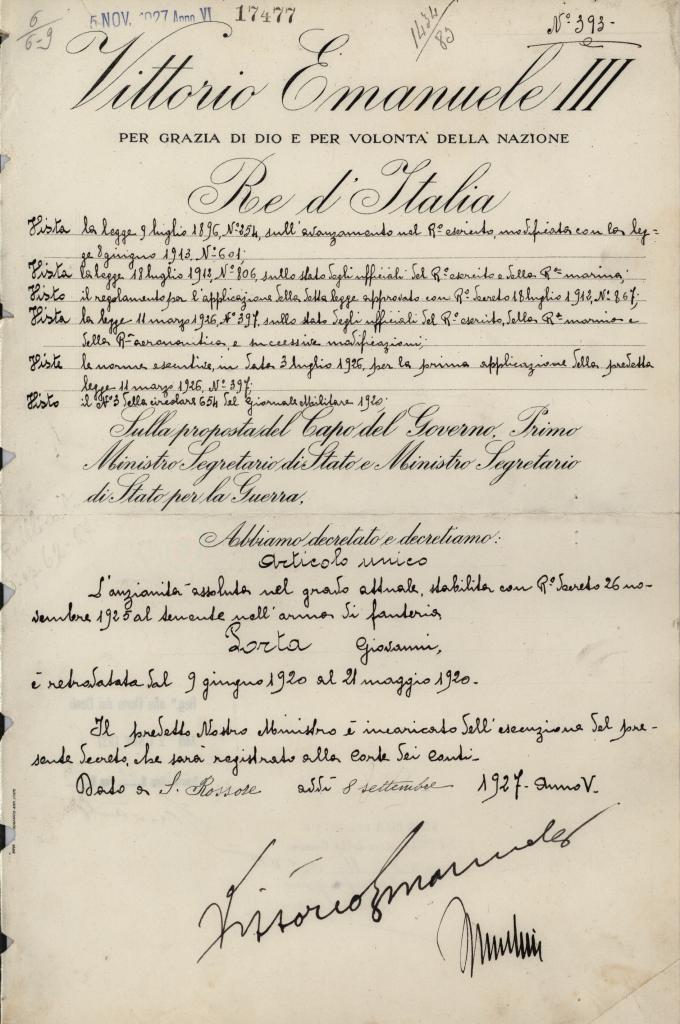 6/6-9
5 NOV. 1927 Anno VI 17477
1434/83
N° 393-
Vittorio Emanuele III
PER GRAZIA DI DIO E PER VOLONTA' DELLA NAZIONE
Re d'Italia
Vista la legge 2 luglio 1896, N° 254, sull'avanzamento nel R° esercito, modificata con la leg=
ge 8 giugno 1913, N° 601;
Vista la legge 18 luglio 1912, N° 806, sullo stato degli ufficiali del R° esercito e della Rª marina;
Visto il regolamento per l'applicazione della detta legge approvato con R° decreto 18 luglio 1912, N° 867;
Vista la legge 11 marzo 1926, N° 397, sullo stato degli ufficiali del R° esercito, della Rª marina e
della Rª aeronautica, e successive modificazioni;
Viste le norme esecutive, in data 3 luglio 1926, per la prima applicazione della predetta
legge 11 marzo 1926, N° 397;
Visto il N° 3 della circolare 654 del Giornale Militare 1920;
Sulla proposta del Capo del Governo, Primo
Ministro Segretario di Stato e Ministro Segretario
di Stato per la Guerra,
Abbiamo decretato e decretiamo:
Articolo unico
L'anzianità assoluta nel grado attuale, stabilita con R° decreto 26 no-
vembre 1925 al tenente nell'arma di fanteria
Porta Giovanni,
è retrodatata dal 9 giugno 1920 al 21 maggio 1920.-
Il predetto Nostro Ministro è incaricato dell'esecuzione del pre-
sente decreto, che sarà registrato alla Corte dei Conti.-
Dato a S. Rossore addì 8 settembre 1927 - Anno V.-
Vittorio Emanuele
Mussolini